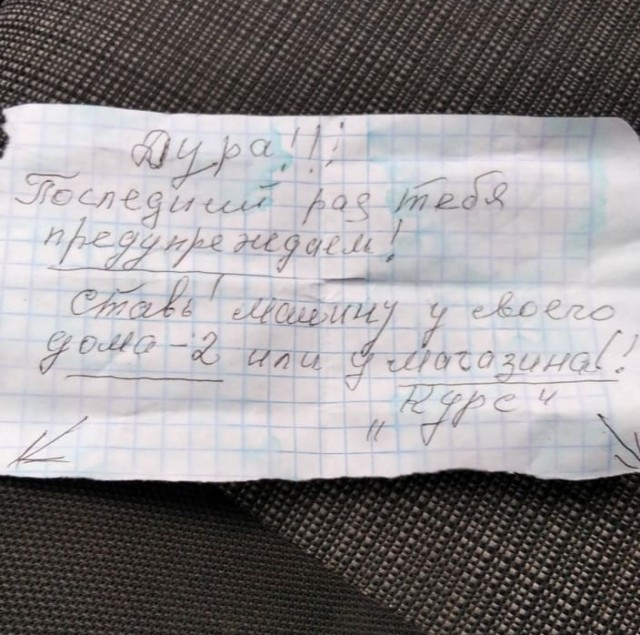 Дура!!!
Последний раз тебя
предупреждаем!
Ставь! машину у своего
дома-2 или у магазина!!
„Курс"